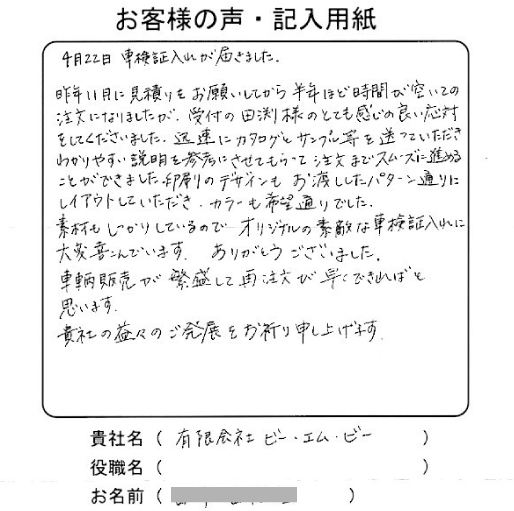 お客様の声・記入用紙
4月22日 車検証入れが届きました。
昨年11月に見積りをお願いしてから半年ほど時間が空いての
注文になりましたが、受付の田渕様のとても感じの良い応対
をしてくださいました。迅速にカタログとサンプル等を送っていただき
わかりやすい説明を参考にさせてもらって注文までスムーズに進める
ことができました。印刷のデザインもお渡ししたパターン通りに
レイアウトしていただき、カラーも希望通りでした。
素材もしっかりしているので オリジナルの素敵な車検証入れに
大変喜んでいます。 ありがとうございました。
車輌販売が繁盛して再注文が早くできればと
思います。
貴社の益々のご発展をお祈り申し上げます。
貴社名( 有限会社 ビー・エム・ビー )
役職名( )
お名前( )